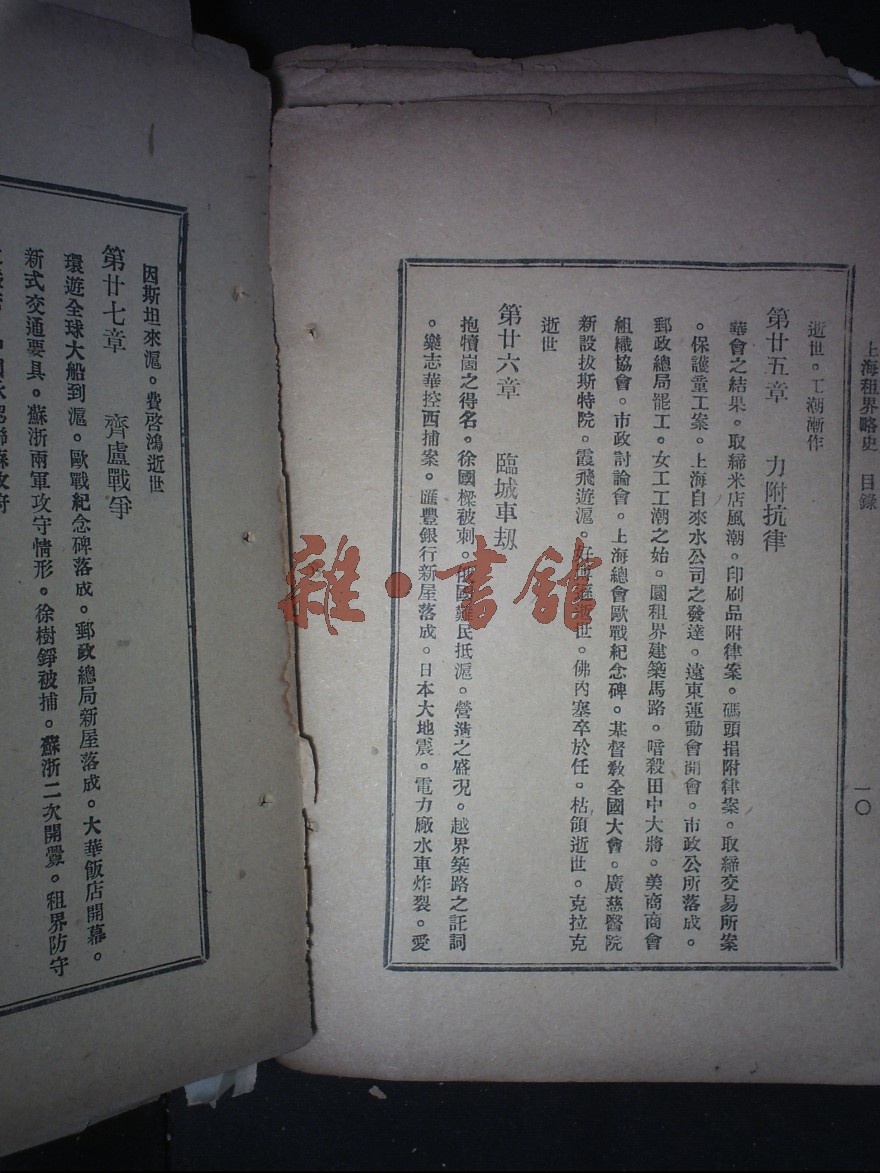 上海租界略史　目錄
一〇
逝世。工潮漸作
第廿五章　力附抗律
華會之結果。取締米店風潮。印刷品附律案。碼頭捐附律案。取締交易所案
。保護童工案。上海自來水公司之發達。遠東運動會開會。市政公所落成。
郵政總局罷工。女工工潮之始。圜租界建築馬路。暗殺田中大將。美商商會
組織協會。市政討論會。上海總會歐戰紀念碑。基督敎全國大會。廣慈醫院
新設拔斯特院。霞飛遊滬。好逝世。佛內塞卒於任。枯領逝世。克拉克
逝世
第廿六章　臨城車刼
抱犢崮之得名。徐國樑被刺。國難民抵滬。營漪之盛況。越界築路之託詞
。樂志華控西捕案。匯豐銀行新屋落成。日本大地震。電力廠水車炸裂。愛
因斯坦來滬。費啓鴻逝世
第廿七章　齊盧戰爭
環遊全球大船到滬。歐戰紀念碑落成。郵政總局新屋落成。大華飯店開幕。
新式交通要具。蘇浙兩軍攻守情形。徐樹錚被捕。蘇浙二次開釁。租界防守
雜·書館